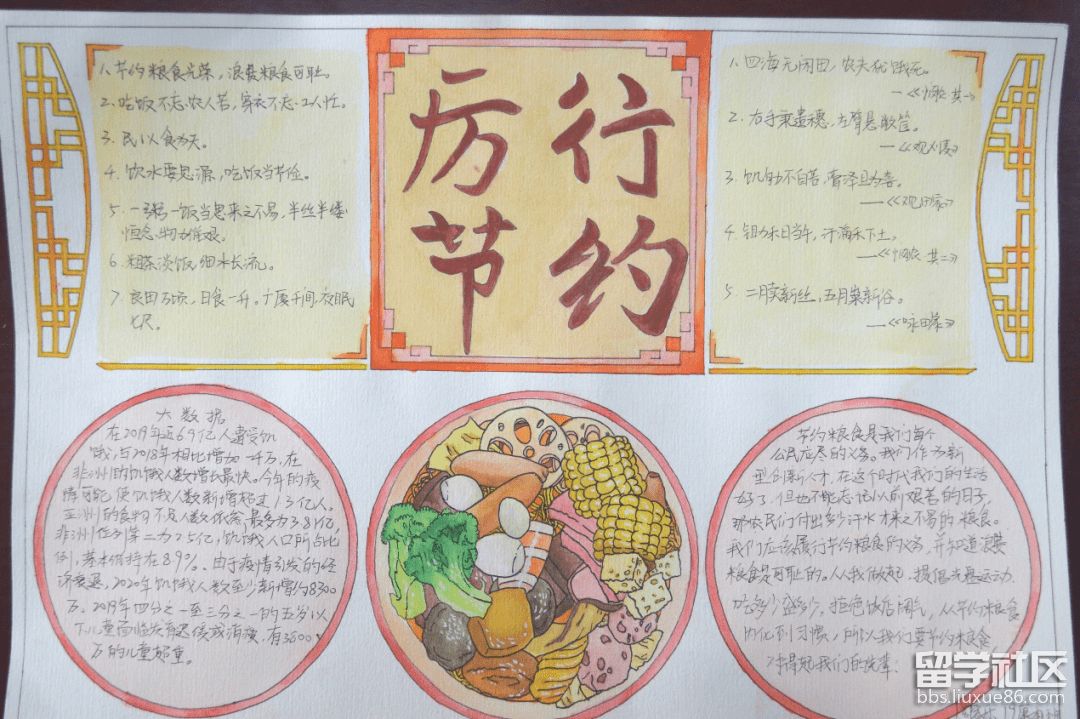 1. 节约粮食光荣，浪费粮食可耻。
2. 吃饭不忘农人苦，穿衣不忘工人忙。
3. 民以食为天。
4. 饮水要思源，吃饭当节俭。
5. 一粥一饭当思来之不易，半丝半缕
恒念物力维艰。
6. 粗茶淡饭，细水长流。
7. 良田万顷，日食一升。广厦千间，夜眠
七尺。
厉行
节约
1. 四海无闲田，农夫犹饿死。
—《悯农 其一》
2. 右手秉遗穗，左臂悬敝筐。
—《观刈麦》
3. 饥劬不自苦，膏泽且为喜。
—《观田家》
4. 锄禾日当午，汗滴禾下土。
—《悯农 其二》
5. 二月卖新丝，五月粜新谷。
—《咏田家》
大数据
在2019年近6.9亿人遭受饥
饿，与2018年相比增加一千万，在
非洲的饥饿人数增长最快。今年的疫
情可能使饥饿人数新增超过1.3亿人。
亚洲的食物不足人数依然最多为3.81亿，
非洲位列第二为2.5亿，饥饿人口所占比
例，基本维持在8.9%。由于疫情引发的经
济衰退，2020年饥饿人数至少新增约8300
万。2019年四分之一至三分之一的五岁以
下儿童面临发育迟缓或消瘦，有3800
万的儿童超重。
节约粮食是我们每个
公民应尽的义务。我们作为新
型创新人才，在这个时代我们的生活
好了，但也不能忘记以前艰苦的日子，
那农民们付出多少汗水才来之不易的粮食。
我们应该履行节约粮食的义务，并知道浪费
粮食是可耻的。从我做起，提倡光盘运动，
吃多少盛多少，拒绝饭店阔气，从节约粮食
内化到习惯，所以我们要节约粮食
对得起我们的先辈！
留学社区
bbs.liuxue86.com